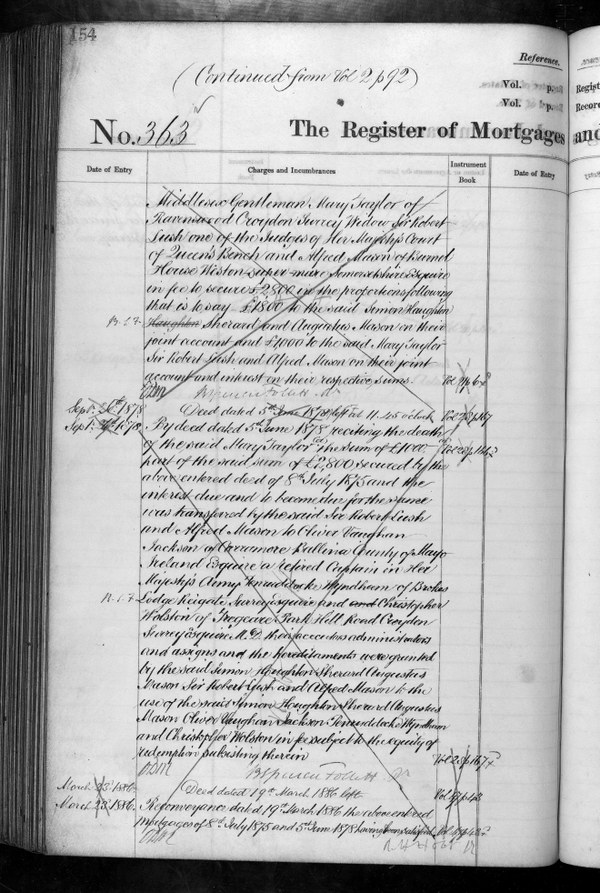 154
Reference.
(Continued from Vol 2 p 92)
Vol. p.
Vol. p.
No. 363
The Register of Mortgages and
Regist
Recor
Date of Entry
Charges and Incumbrances
Instrument
Book
Date of Entry
Middlesex Gentleman Mary Taylor of
Ravenswood Croydon Surrey Widow Sir Robert
Lush one of the Judges of Her Majesty's Court
of Queens Bench and Alfred Mason of
House Weston super mare Somersetshire Esquire
in fee to secure £2,800 in the proportions following
that is to say £1800 to the said Simon Haughton
Haughton Sherard and Augustus Mason on their
joint account and £1000 to the said Mary Taylor
Sir Robert Lush and Alfred Mason on their joint
account and interest on their respective sums.
Sept. 26th 1878
Deed dated 5th June 1878 left at 11.45 o'clock
Sept. 1878
By deed dated 5th June 1878 reciting the death
of the said Mary Taylor the sum of £1000
part of the said sum of £2,800 secured by the
above entered deed of 8th July 1875 and the
interest due and to become due for the same
was transferred by the said Sir Robert Lush
and Alfred Mason to Oliver Vaughan
Jackson of Carramore Ballina County of Mayo
Ireland Esquire a retired Captain in Her
Majesty's Army Wyndham of Brokes
Lodge Reigate Surrey Esquire and and Christopher
Wolston of Park Hill Road Croydon
Surrey Esquire M.D. their executors administrators
and assigns and the hereditaments were granted
by the said Simon Haughton Sherard Augustus
Mason Sir Robert Lush and Alfred Mason to the
use of the said Simon Haughton Sherard Augustus
Mason Oliver Vaughan Jackson Wyndham
and Christopher Wolston in fee subject to the equity of
redemption subsisting therein
March 23 1886
Deed dated 19th March 1886 left
March 23 1886
Reconveyance dated 19th March 1886 the above entered
mortgages of 8th July 1875 and 5th June 1878 having been satisfied